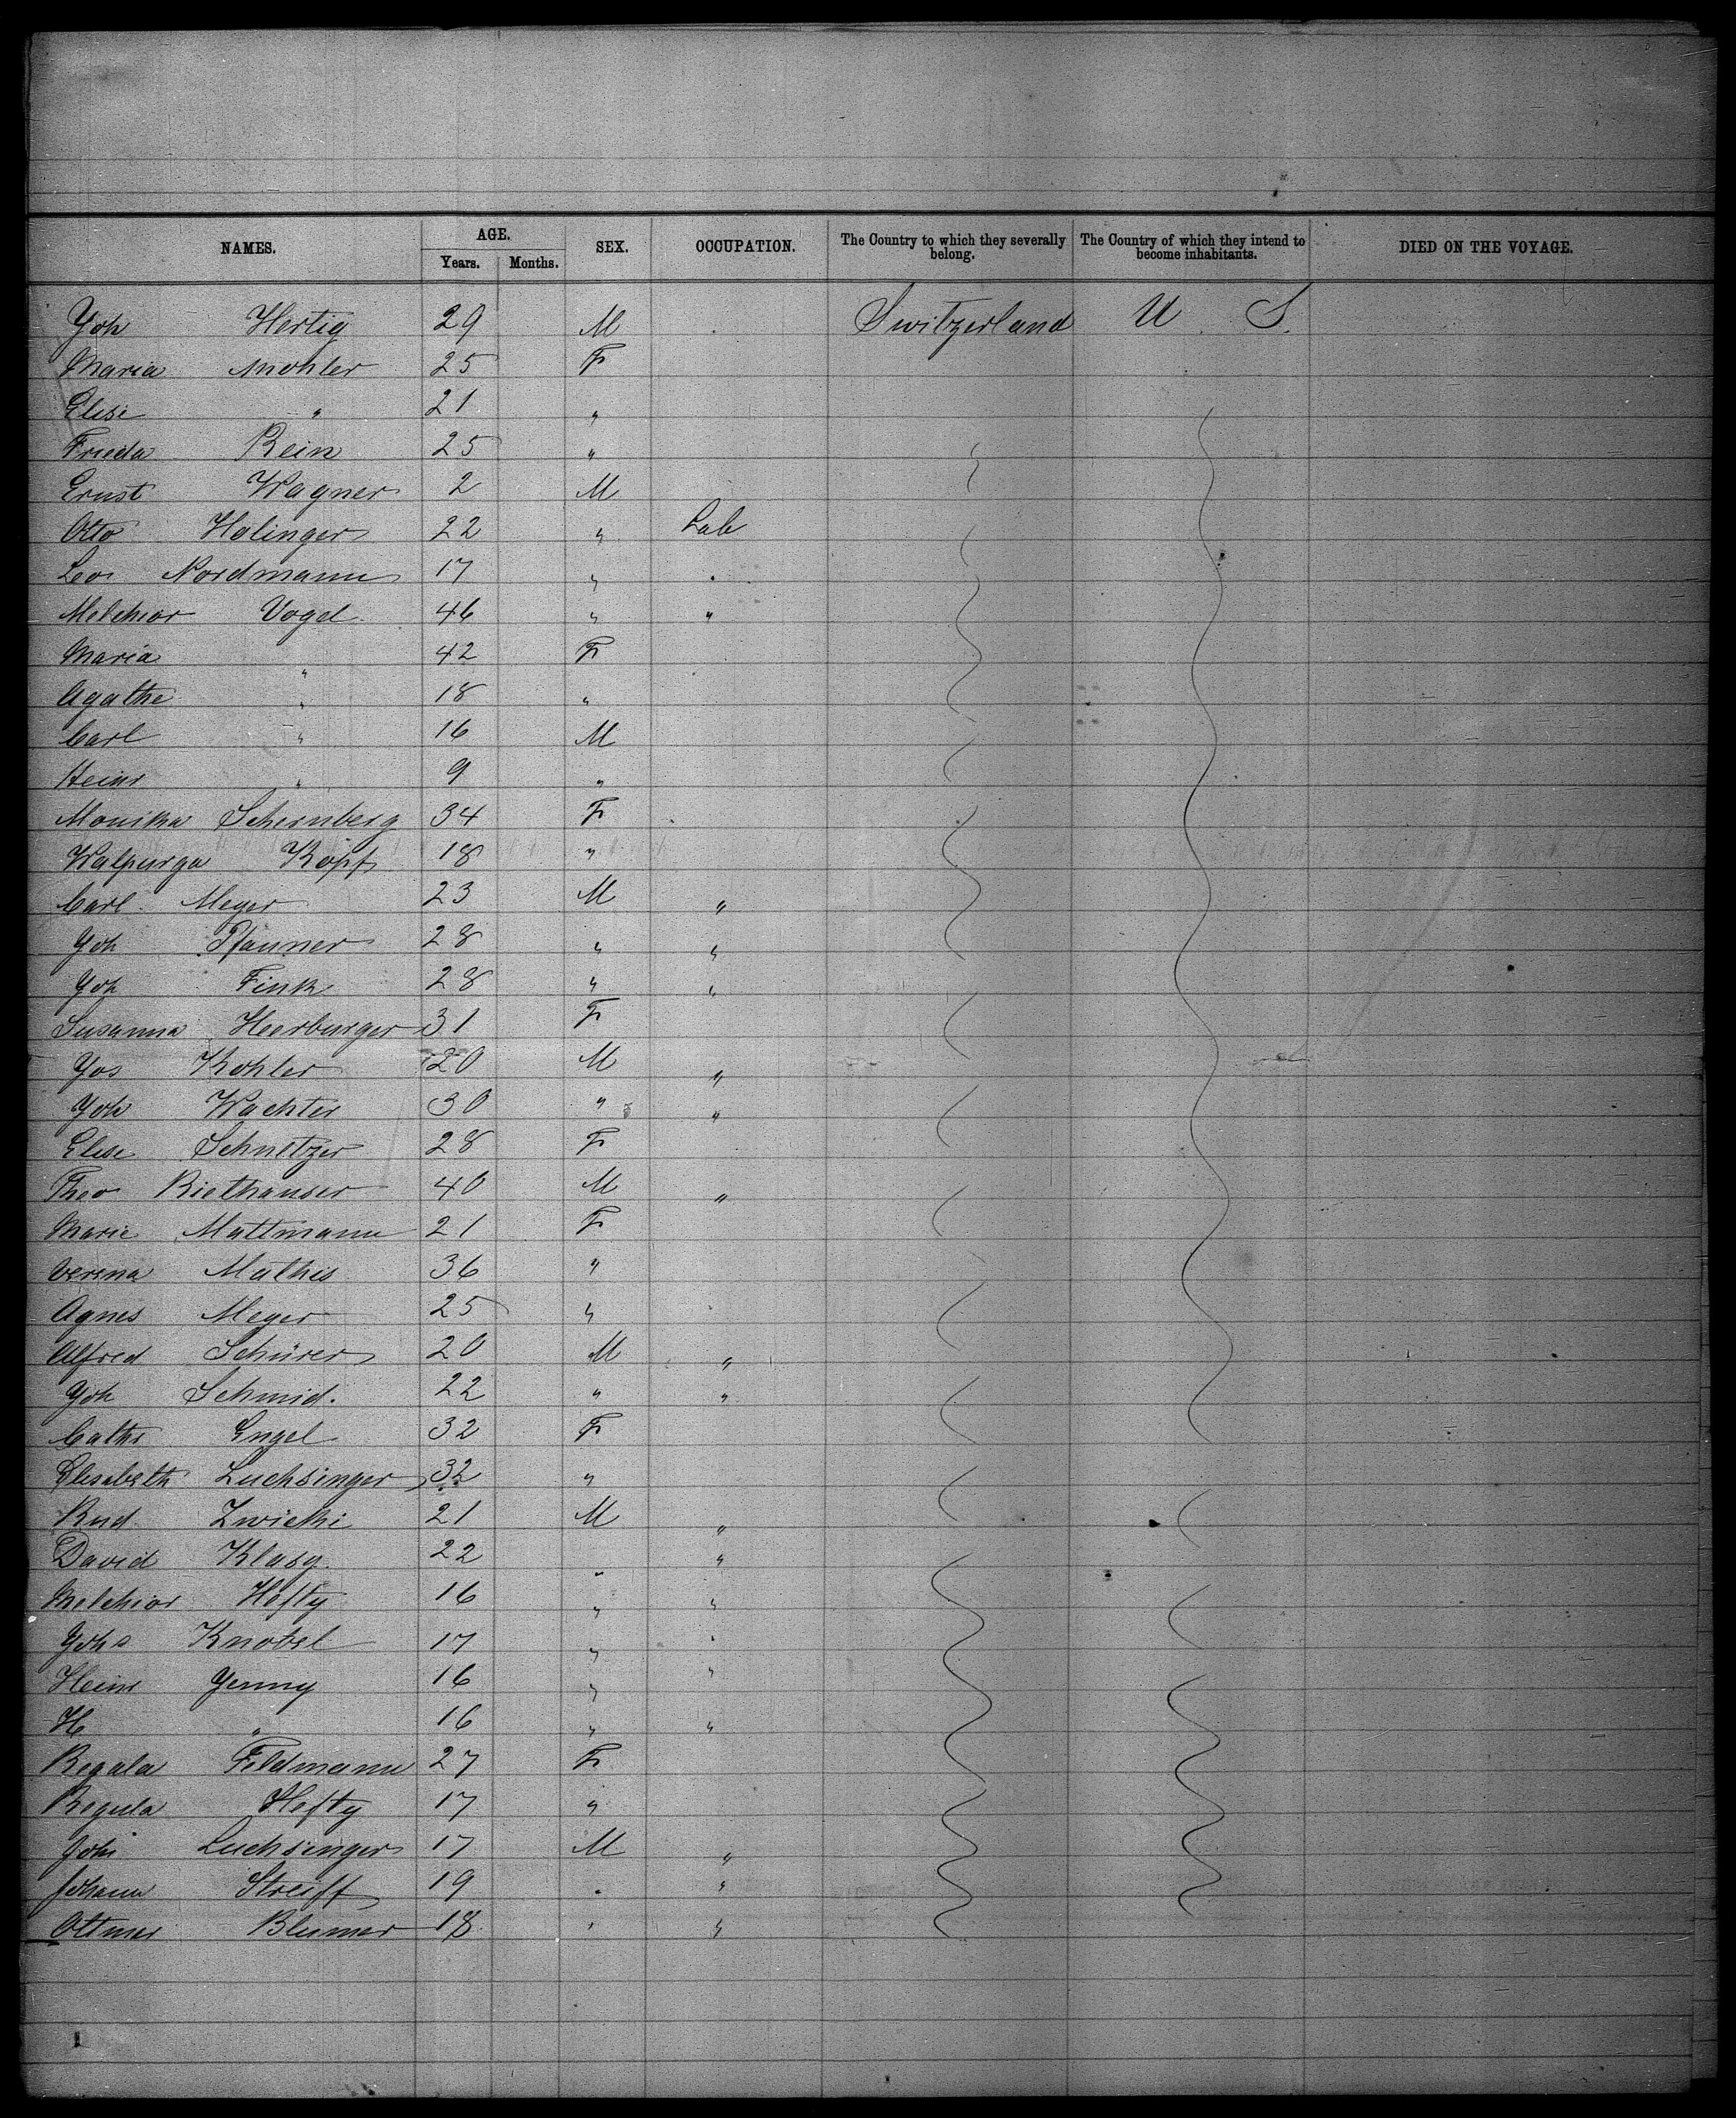 NAMES. AGE. SEX. OCCUPATION. The Country to which they severally belong. The Country of which they intend to become inhabitants. DIED ON THE VOYAGE.
Years. Months.
Joh Hertig 29 M Switzerland U. S.
Maria Mohler 25 F
Elise " 21 "
Frieda Rein 25 "
Ernst Wagner 2 M
Otto Holinger 22 " Lab
Leo Nordmann 17 " "
Melchior Vogel 46 " "
Maria " 42 F
Agathe " 18 "
Carl " 16 M
Heinr " 9 "
Monika Schernberg 34 F
Walpurga Köpf 18 "
Carl Meyer 23 M "
Joh Pfanner 28 " "
Joh Fink 28 " "
Susanna Heerburger 31 F
Jos Kohler 20 M "
Joh Wachter 30 " "
Elise Schnetzer 28 F
Theo Riethauser 40 M "
Marie Mattmann 21 F
Verena Mathis 36 "
Agnes Meyer 25 "
Alfred Schürer 20 M "
Joh Schmid. 22 " "
Cathr Engel 32 F
Elisabeth Luchsinger 32 "
Rud Zwicki 21 M "
David Klasy 22 " "
Melchior Hefty 16 " "
Johs Knobel 17 " "
Heinr Jenny 16 " "
H " 16 " "
Regala Feldmann 27 F
Regula Hefty 17 "
Joh Luchsinger 17 M "
Johann Streiff 19 " "
Ottmar Blumer 18 " "